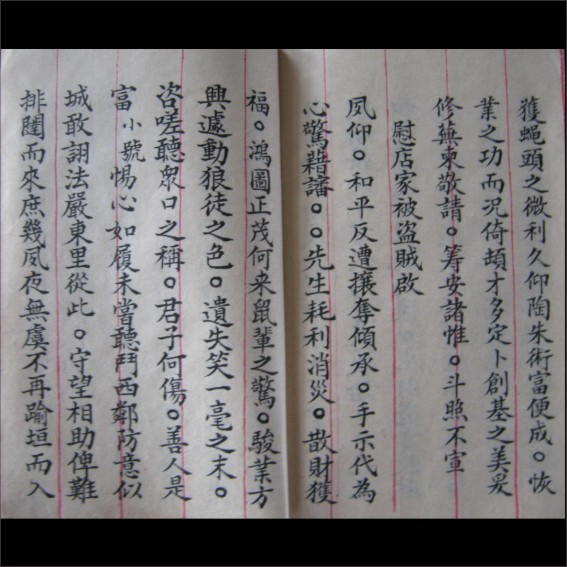 獲蝇頭之微利久仰陶朱術富便成。恢
業之功而況倚頓才多定卜創基之美爰
修蕪柬敬請。筹安諸惟。斗照不宣
慰店家被盗賊啟
夙仰。和平反遭攘奪傾承。手示代為
心驚藉諳。。先生耗利消災。散財獲
福。鴻圖正茂何来鼠輩之驚。駿業方
興遽動狼徒之色。遺失笑一毫之末。
咨嗟聽衆口之稱。君子何傷。善人是
富小號惕心如履未當聽鬥西鄭防意似
城敢詡法嚴東里從此。守望相助俾難
排闥而來庶幾夙夜無虞不再踰垣而入